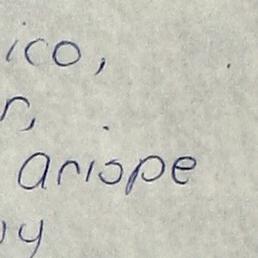 ico,
r,
arispe
uy